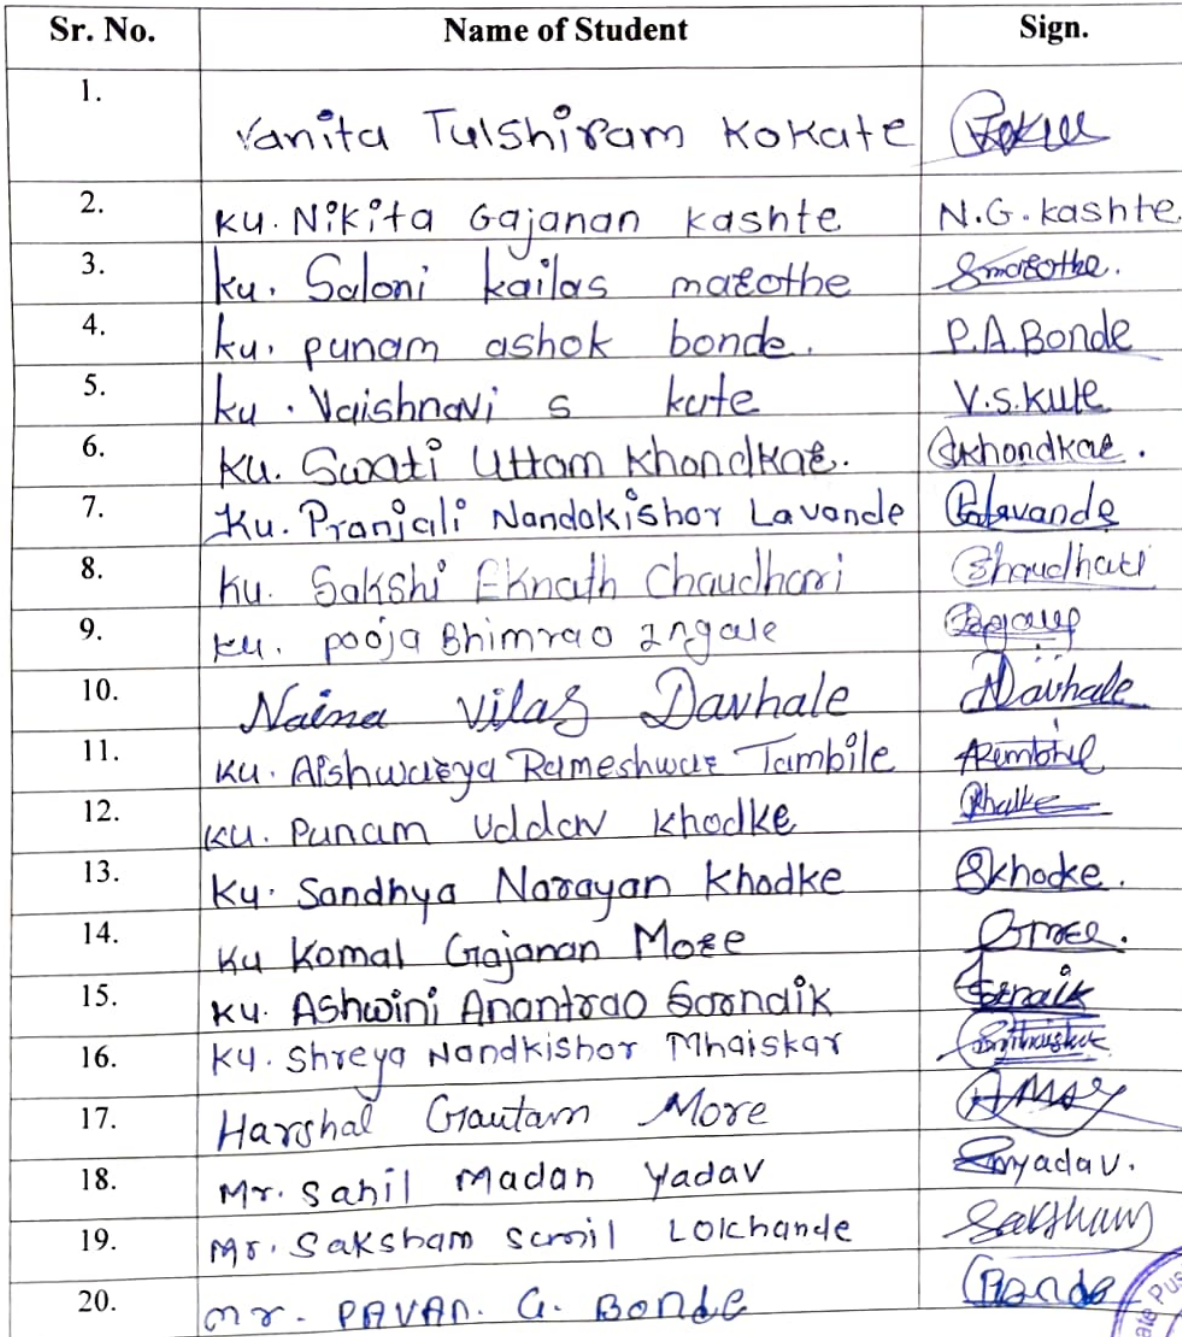 Sr. No. Name of Student Sign.
1. Vanita Tulshiram Kokate
2. Ku. Nikita Gajanan Kashte N.G. Kashte
3. Ku. Saloni kailas marothe Smarothe.
4. Ku. punam ashok bonde. P.A.Bonde
5. Ku. Vaishnavi s kute V.S.Kute
6. Ku. Swati Uttam Khondkar. Skhondkar.
7. Ku. Pranjali Nandakishor Lavande Lavande
8. Ku. Sakshi Eknath Chaudhari Chaudhari
9. Ku. pooja Bhimrao Ingale
10. Naina Vilas Davhale Davhale
11. Ku. Aishwarya Rameshwar Tambile
12. Ku. Punam Uddav Khodke
13. Ku. Sandhya Narayan Khodke Skhodke.
14. Ku Komal Gajanan More
15. Ku. Ashwini Anantrao Sarnaik
16. Ku. Shreya Nandkishor Mhaiskar
17. Harshal Gautam More
18. Mr. Sahil Madan Yadav Smyadav.
19. Mr. Saksham Sunil Lokhande Saksham
20. Mr. PAVAN. G. Bonde Bonde